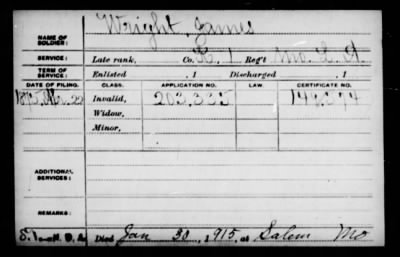 Wright, James
NAME OF SOLDIER:
SERVICE: Late rank, Co. K, 1 Reg't Mo. L. A.
TERM OF SERVICE: Enlisted , 1 Discharged , 1
DATE OF FILING. CLASS. APPLICATION NO. LAW. CERTIFICATE NO.
1875, Apr. 22 Invalid, 203.335
Widow,
Minor,
ADDITIONAL SERVICES:
REMARKS:
Died Jan 30, 1915, at Salem Mo